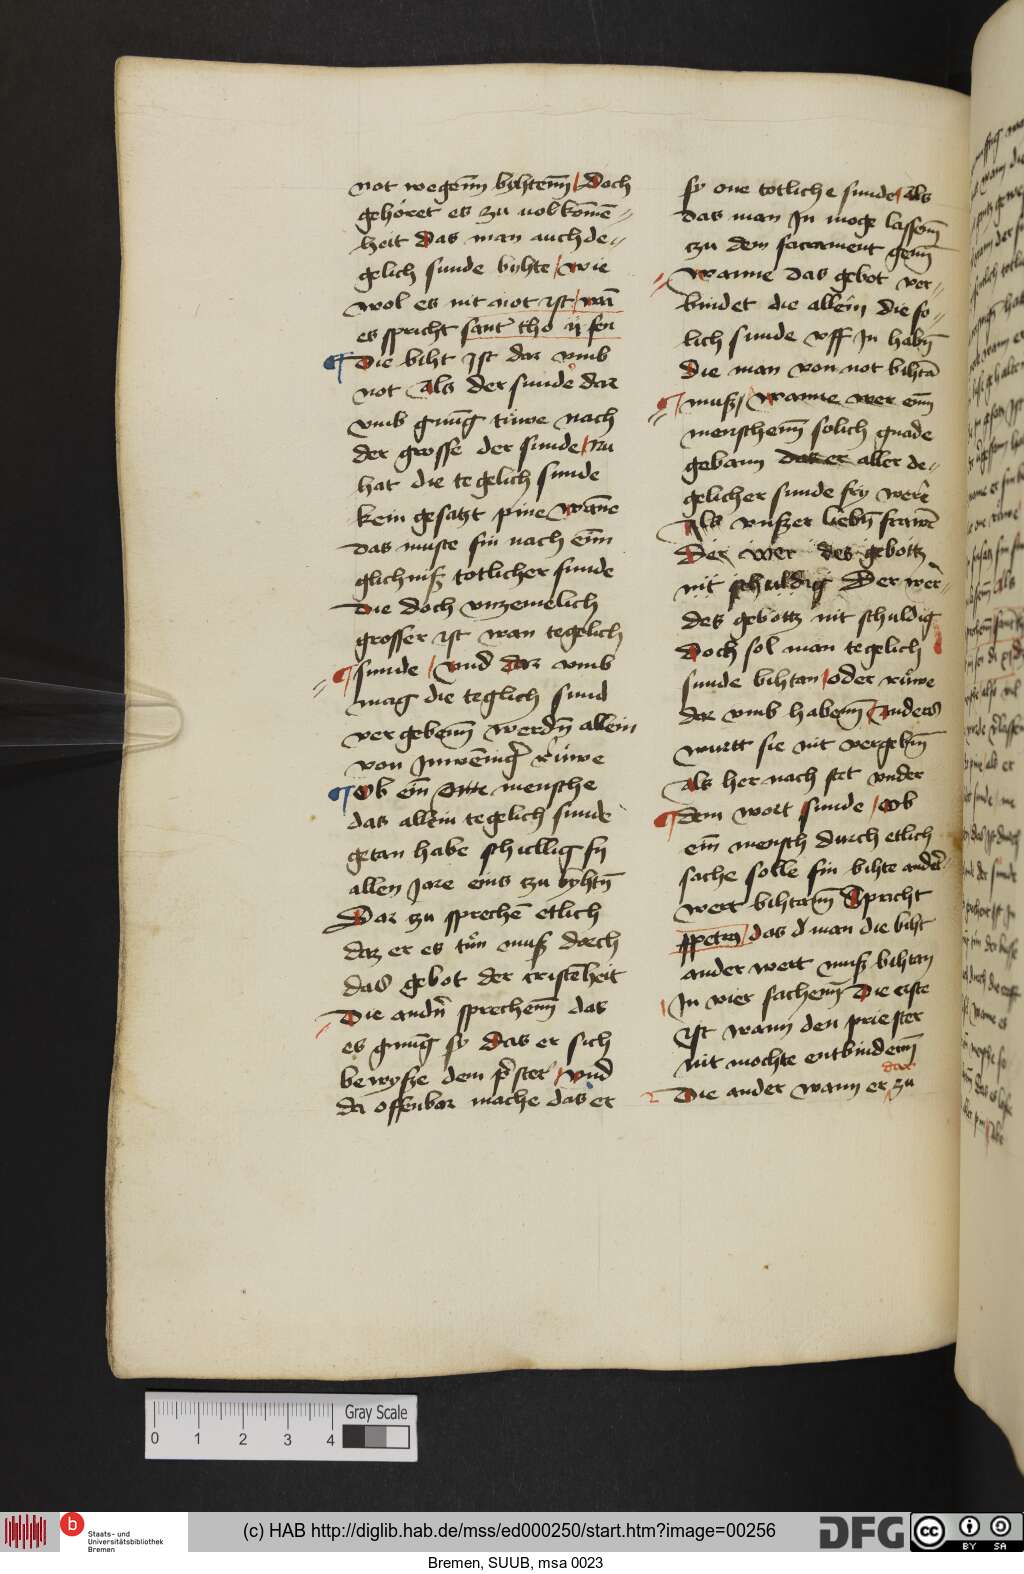 not wegenn byhtenn / Doch
gehöret es zu uolkomē-
heit das man auch de-
gelich sunde byhte / wie
wol es nit not ist / wā
es spricht sant tho ij sen
Die biht ist dar vmb
not Als der sunder dar
vmb gnūg ruwe nach
der grosse der sunde / Nu
hat die tegelich sunde
kein gesatzt pine wāne
das muste sin nach eim
glichniß totlicher sunde
Die doch vnzemelich
grosser ist wan tegelich
sunde / vnd dar vmb
mag die teglich sund
vergebenn werdn̄ allein
von Inwēnig ruwe
Ob ein mensche
das allein tegelich sunde
getan habe schullig sy
allen Jare eins tzu byhtn̄
Dar zu sprechē etlich
daz er es tůn muß durch
das gebot der cristēheit
Die andn̄ sprechenn das
es gnūg sy das er sich
bewysze dem pster / vnd
da offenbar mache das er
sy one totliche sunde / als
das man In moge lassenn
tzu dem sacrament genn
Wanne das gebot ver-
bindet die allein die so-
lich sunde vff In habn̄
Die man von not bihtā
muß / Wanne wer eim
menschenn solich gnade
gebann das er aller de-
gelicher sunde fry were
Als vnszer liebn̄ frawē
Der wer des gebottz
nit schuldig Der wer-
des gebottz nit schuldig
Doch sol man tegelich
sunde bihtan / oder rüwe
dar vmb habenn / Anders
wurtt sie nit vergebn̄
Als her nach stet vnder
dem wort sunde / Ob
ein mensch durch etlich
sache solle sin bihte ander-
wert bihtann Spricht
petrꝰ / das d man die biht
ander wert muß bihtan
In vier sachenn Die erste
ist wann den priester
nit mochte entbindenn
Die ander wann er dar zu
0 1 2 3 4
Gray Scale
b
Staats- und
Universitätsbibliothek
Bremen
(c) HAB http://diglib.hab.de/mss/ed000250/start.htm?image=00256
DFG
cc
BY SA
Bremen, SUUB, msa 0023